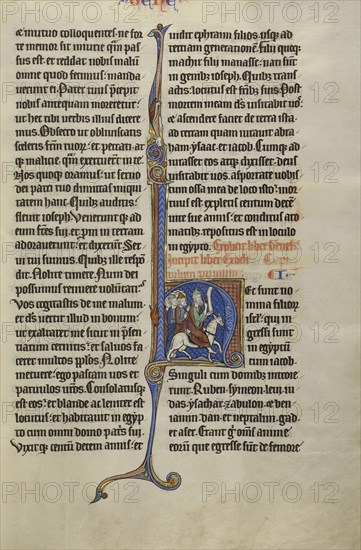 GENE
et mutuo colloquentes. ne for
te memor sit iniurie quam pas
sus est. et reddat nobis malum
omne quod fecimus. manda
uerunt ei. Pater tuus precepit
nobis antequam moreretur.
ut hec tibi uerbis illius dicere
mus. Obsecro ut obliuiscaris
sceleris fratrum tuorum. et peccati at
que malicie quam exercuerunt in te.
Nos quoque oramus. ut seruo
dei patri tuo dimittas iniqui
tatem hanc. Quibus auditis:
fleuit ioseph. Venerunt que ad
eum fratres sui. et proni in terram
adorauerunt. et dixerunt. Ser
ui tui sumus. Quibus ille respon
dit. Nolite timere. Num dei
possumus rennuere uoluntatem?
Vos cogitastis de me malum.
et deus uertit illud in bonum.
ut exaltaret me sicut in presen
tiarum cernitis. et saluos fa
ceret multos populos. Nolite
metuere. ego pascam uos et
paruulos uestros. Consolatusque
est eos. et blande ac leniter est
locutus. et habitauit in egyp
to cum omni domo patris sui.
Vixitque centum decem annis. et
uidit ephraim filios usque ad
terciam generationem. Filii quoque
machir filii manasse. nati sunt
in genibus ioseph. Quibus trans
actis. locutus est fratribus suis. Post
mortem meam deus uisitabit uos.
et ascendere faciet de terra ista.
ad terram quam iurauit abra
ham. ysaac. et iacob. Cumque ad
iurasset eos atque dixisset. deus
uisitabit uos. asportate uobis
cum ossa mea de loco isto. mor
tuus est expletis centum decem
uite sue annis. et conditus aro
matibus. repositus est in loculo
in egypto. Explicit liber Genesis.
Incipit liber Exodi. Capi
tulum primum.
I.
Hec sunt no
mina filiorum
israel. qui in
gressi sunt
in egyptum
cum iacob.
Singuli cum domibus introie
runt. Ruben. symeon. leui. iu
das. ysachar. zabulon. et ben
iamin. dan. et neptalim. gad.
et aser. Erant igitur omnes anime
eorum que egresse sunt de femore